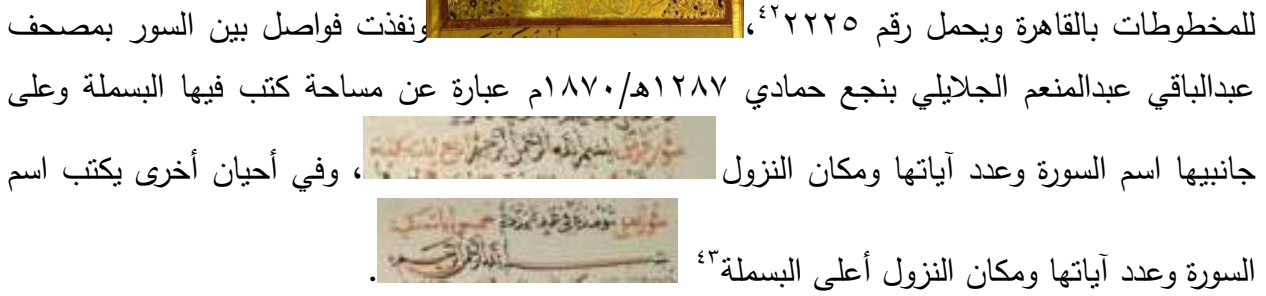 للمخطوطات بالقاهرة ويحمل رقم ٢٢٢٥٤٢، ونفذت فواصل بين السور بمصحف
عبدالباقي عبدالمنعم الجلايلي بنجع حمادي ١٢٨٧ه/١٨٧٠م عبارة عن مساحة كتب فيها البسملة وعلى
بسم الله الرحمن الرحيم
جانبيها اسم السورة وعدد آياتها ومكان النزول ، وفي أحيان أخرى يكتب اسم
السورة وعدد آياتها ومكان النزول أعلى البسملة٤٣ .